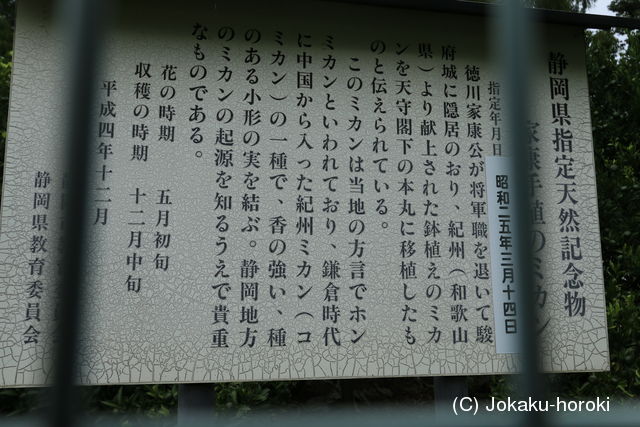 静岡県指定天然記念物
家康手植のミカン
指定年月日
昭和二五年三月十四日
徳川家康公が将軍職を退いて駿
府城に隠居のおり、紀州（和歌山
県）より献上された鉢植えのミカ
ンを天守閣下の本丸に移植したも
のと伝えられている。
このミカンは当地の方言でホン
ミカンといわれており、鎌倉時代
に中国から入った紀州ミカン（コ
ミカン）の一種で、香の強い、種
のある小形の実を結ぶ。静岡地方
のミカンの起源を知るうえで貴重
なものである。
花の時期　五月初旬
収穫の時期　十二月中旬
平成四年十二月
静岡県教育委員会
(C) Jokaku-horoki